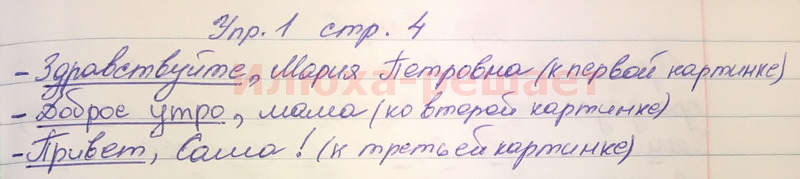 Упр. 1 стр. 4
- Здравствуйте, Мария Петровна (к первой картинке)
Илюха-решает
- Доброе утро, мама (ко второй картинке)
- Привет, Саша! (к третьей картинке)